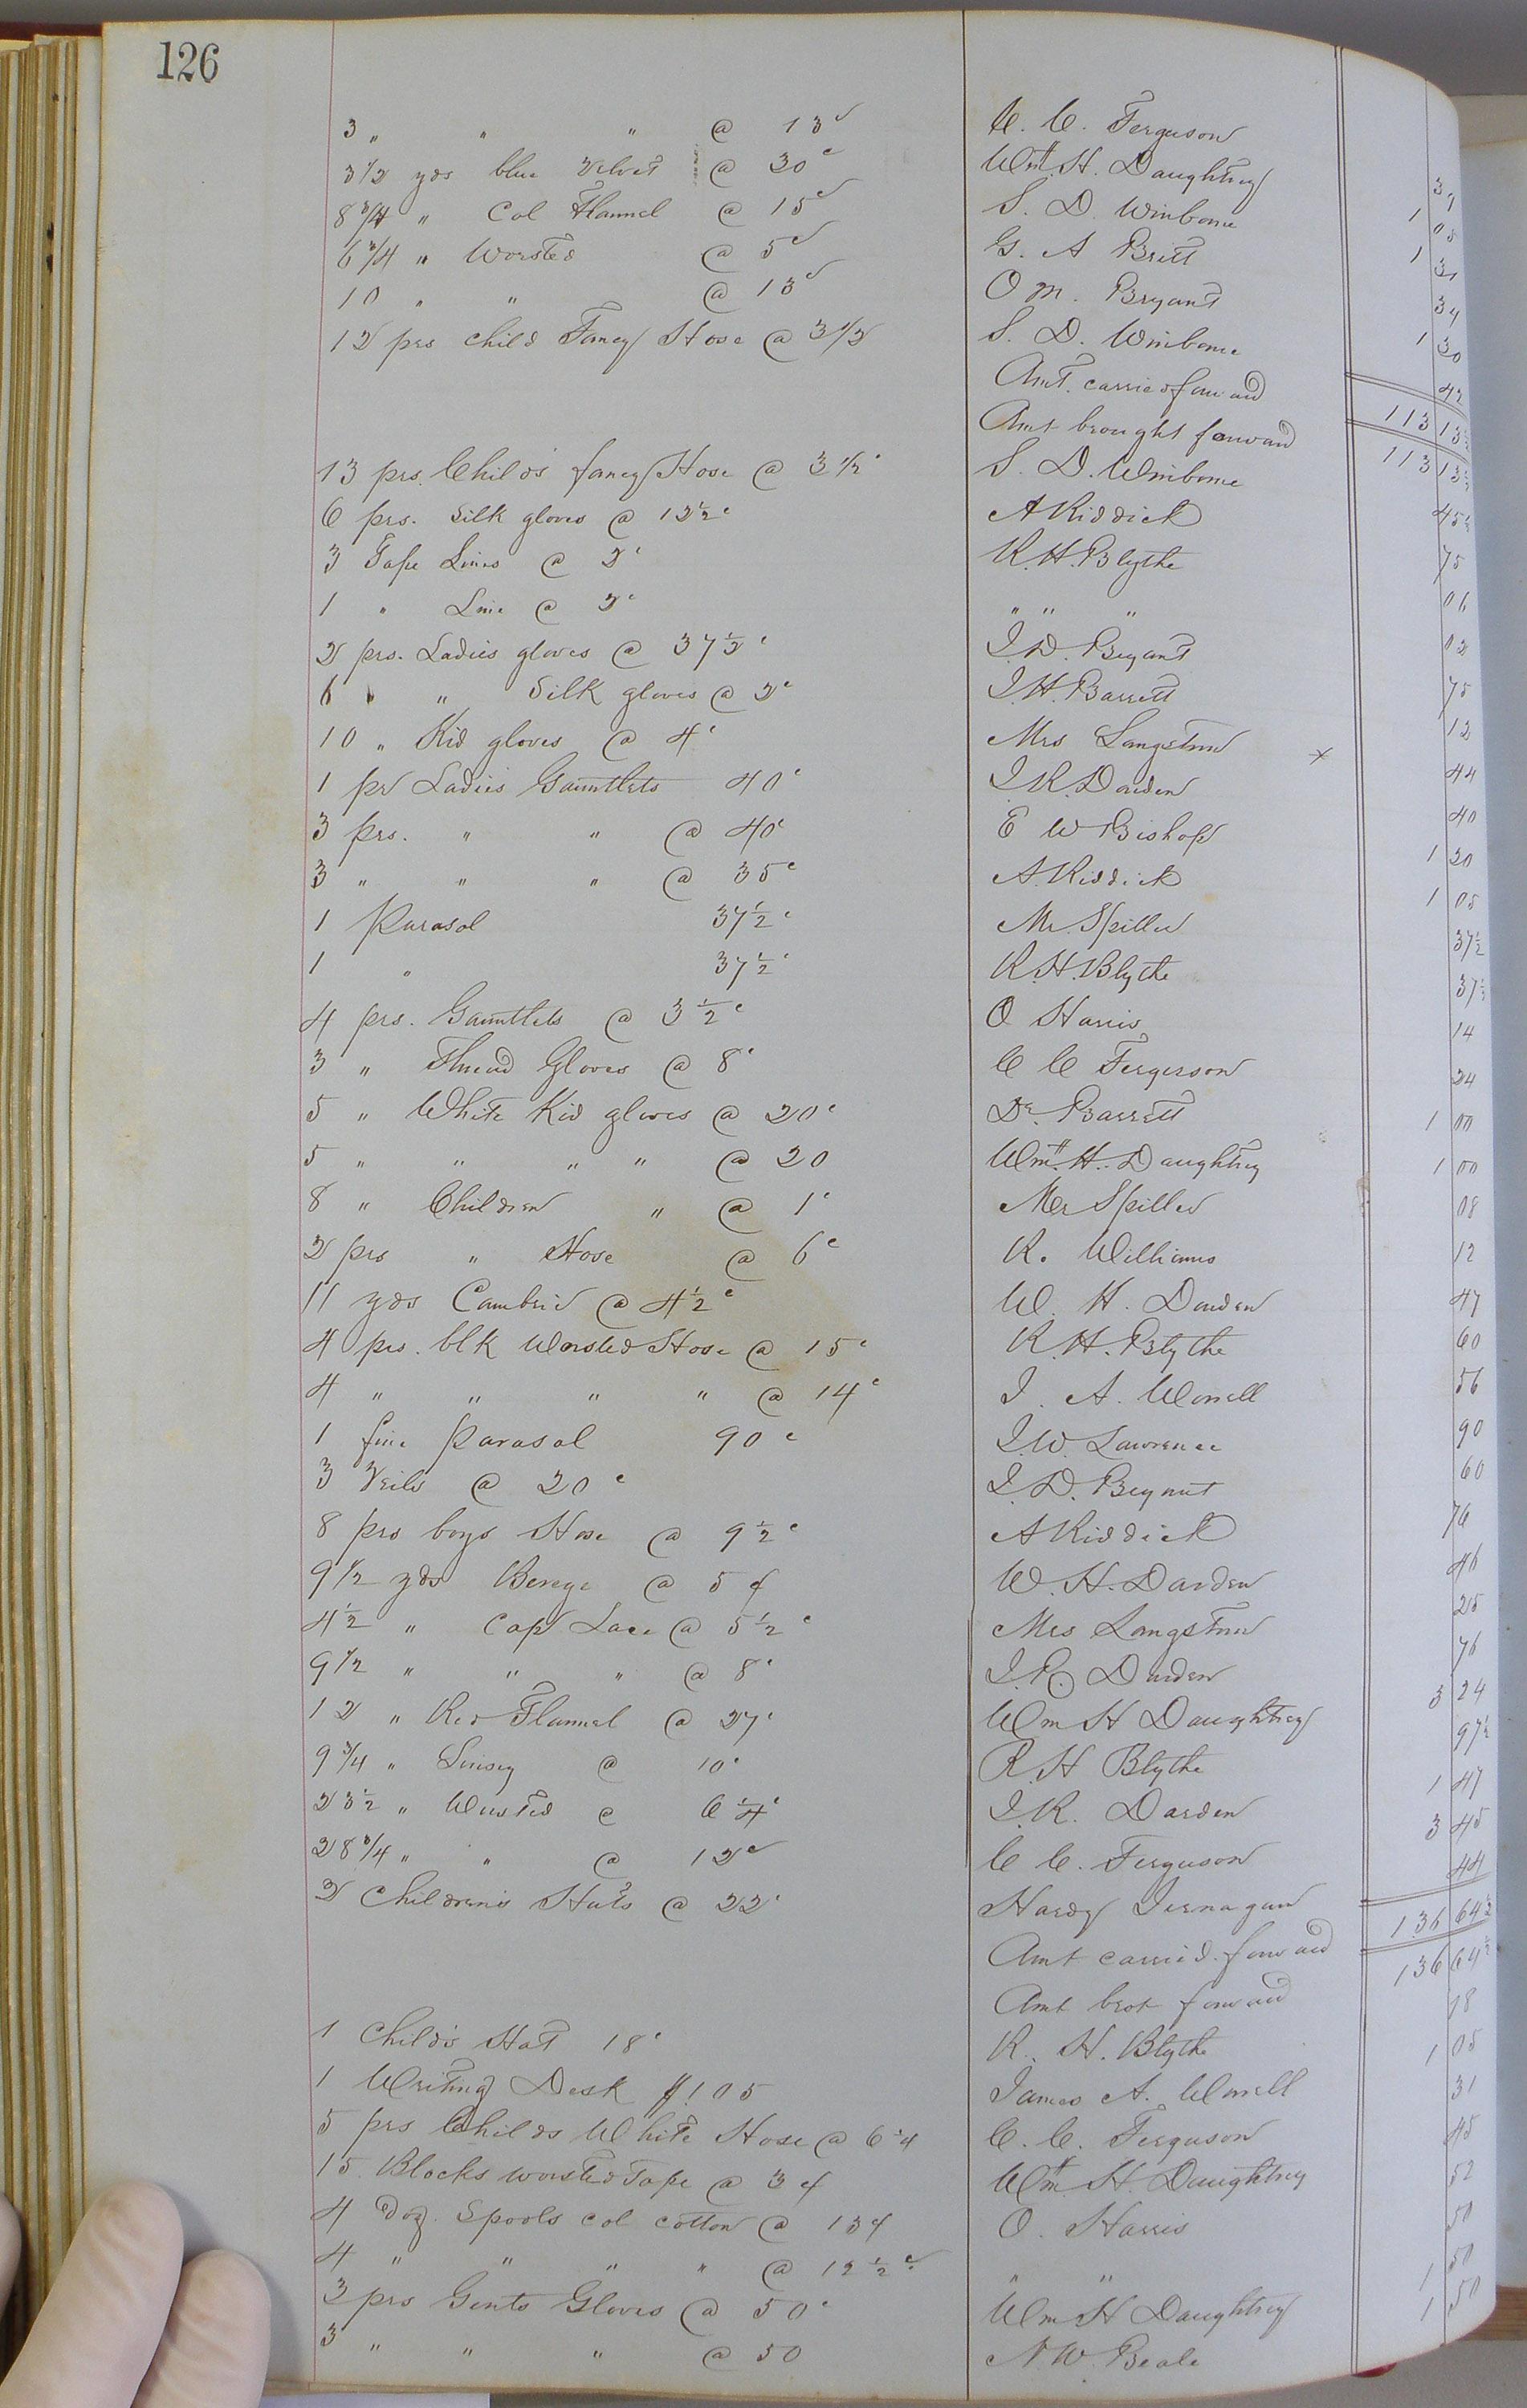 126
3 " " " @ 13c C. C. Ferguson 39
3 1/2 yds blue Velvet @ 30c Wm. H. Daughtrey 1 05
8 3/4 " Col Flannel @ 15c S. D. Winborne 1 31
6 3/4 " Worsted @ 5c G. A Britt 34
10 " " @ 13c O M. Bryant 1 30
12 prs child Fancy Hose @ 3 1/2 S. D. Winborne 42
Amt. carried forward 113 13 1/2
Amt brought forward 113 13 1/2
13 prs. Child's fancy Hose @ 3 1/2c S. D. Winborne 45 1/2
6 prs. Silk gloves @ 12 1/2c A Riddick 75
3 Tape Lines @ 2c R. H. Blythe 06
1 " Line @ 2c " " " 02
2 prs. Ladies gloves @ 37 1/2c J. D. Bryant 75
6 " " Silk gloves @ 2c J. H. Barrett 12
10 " Kid gloves @ 4c Mrs Langston x 44
1 pr Ladies Gauntlets 40c J. R. Darden 40
3 prs. " " @ 40c E W Bishop 1 20
3 " " " @ 35c A. Riddick 1 05
1 Parasol 37 1/2c Mr. Spiller 37 1/2
1 " 37 1/2c R. H. Blythe 37 1/2
4 prs. Gauntlets @ 3 1/2c O Harris 14
3 " Thread Gloves @ 8c C C Fergerson 24
5 " White Kid gloves @ 20c Dr. Barrett 1 00
5 " " " " @ 20 Wm. H. Daughtrey 1 00
8 " Children " @ 1c Mr Spiller 08
2 prs " Hose @ 6c R. Williams 12
11 yds Cambric @ 4 1/2c W. H. Darden 47
4 prs. blk Worsted Hose @ 15c R. H. Blythe 60
4 " " " " @ 14c J. A. Worrell 56
1 fine Parasol 90c J. W. Lawrence 90
3 Veils @ 20c J. D. Bryant 60
8 prs boys Hose @ 9 1/2c A Riddick 76
9 1/2 yds Berege @ 5¢ W. H. Darden 46
4 1/2 " Cap Lace @ 5 1/2c Mrs Langston 25
9 1/2 " " " @ 8c J. R. Darden 76
12 " Red Flannel @ 27c Wm H Daughtrey 3 24
9 3/4 " Linsey @ 10c R. H Blythe 97 1/2
23 1/2 " Worsted @ 6 1/4c J. R. Darden 1 47
28 3/4 " " @ 12c C C. Ferguson 3 45
2 Children's Hats @ 22c Hardy Jernagan 44
Amt carried forward 136 64 1/2
Amt brot forward 136 64 1/2
1 Child's Hat 18c R. H. Blythe 18
1 Writing Desk $1.05 James A. Worrell 1 05
5 prs Childs White Hose @ 6 1/4 C. C. Ferguson 31
15 Blocks worsted Tape @ 3¢ Wm. H. Daughtrey 45
4 Doz. Spools col cotton @ 13¢ O. Harris 52
4 " " " " @ 12 1/2c " " 50
3 prs Gents Gloves @ 50c Wm H Daughtrey 1 50
3 " " " @ 50 N. W. Beale 1 50